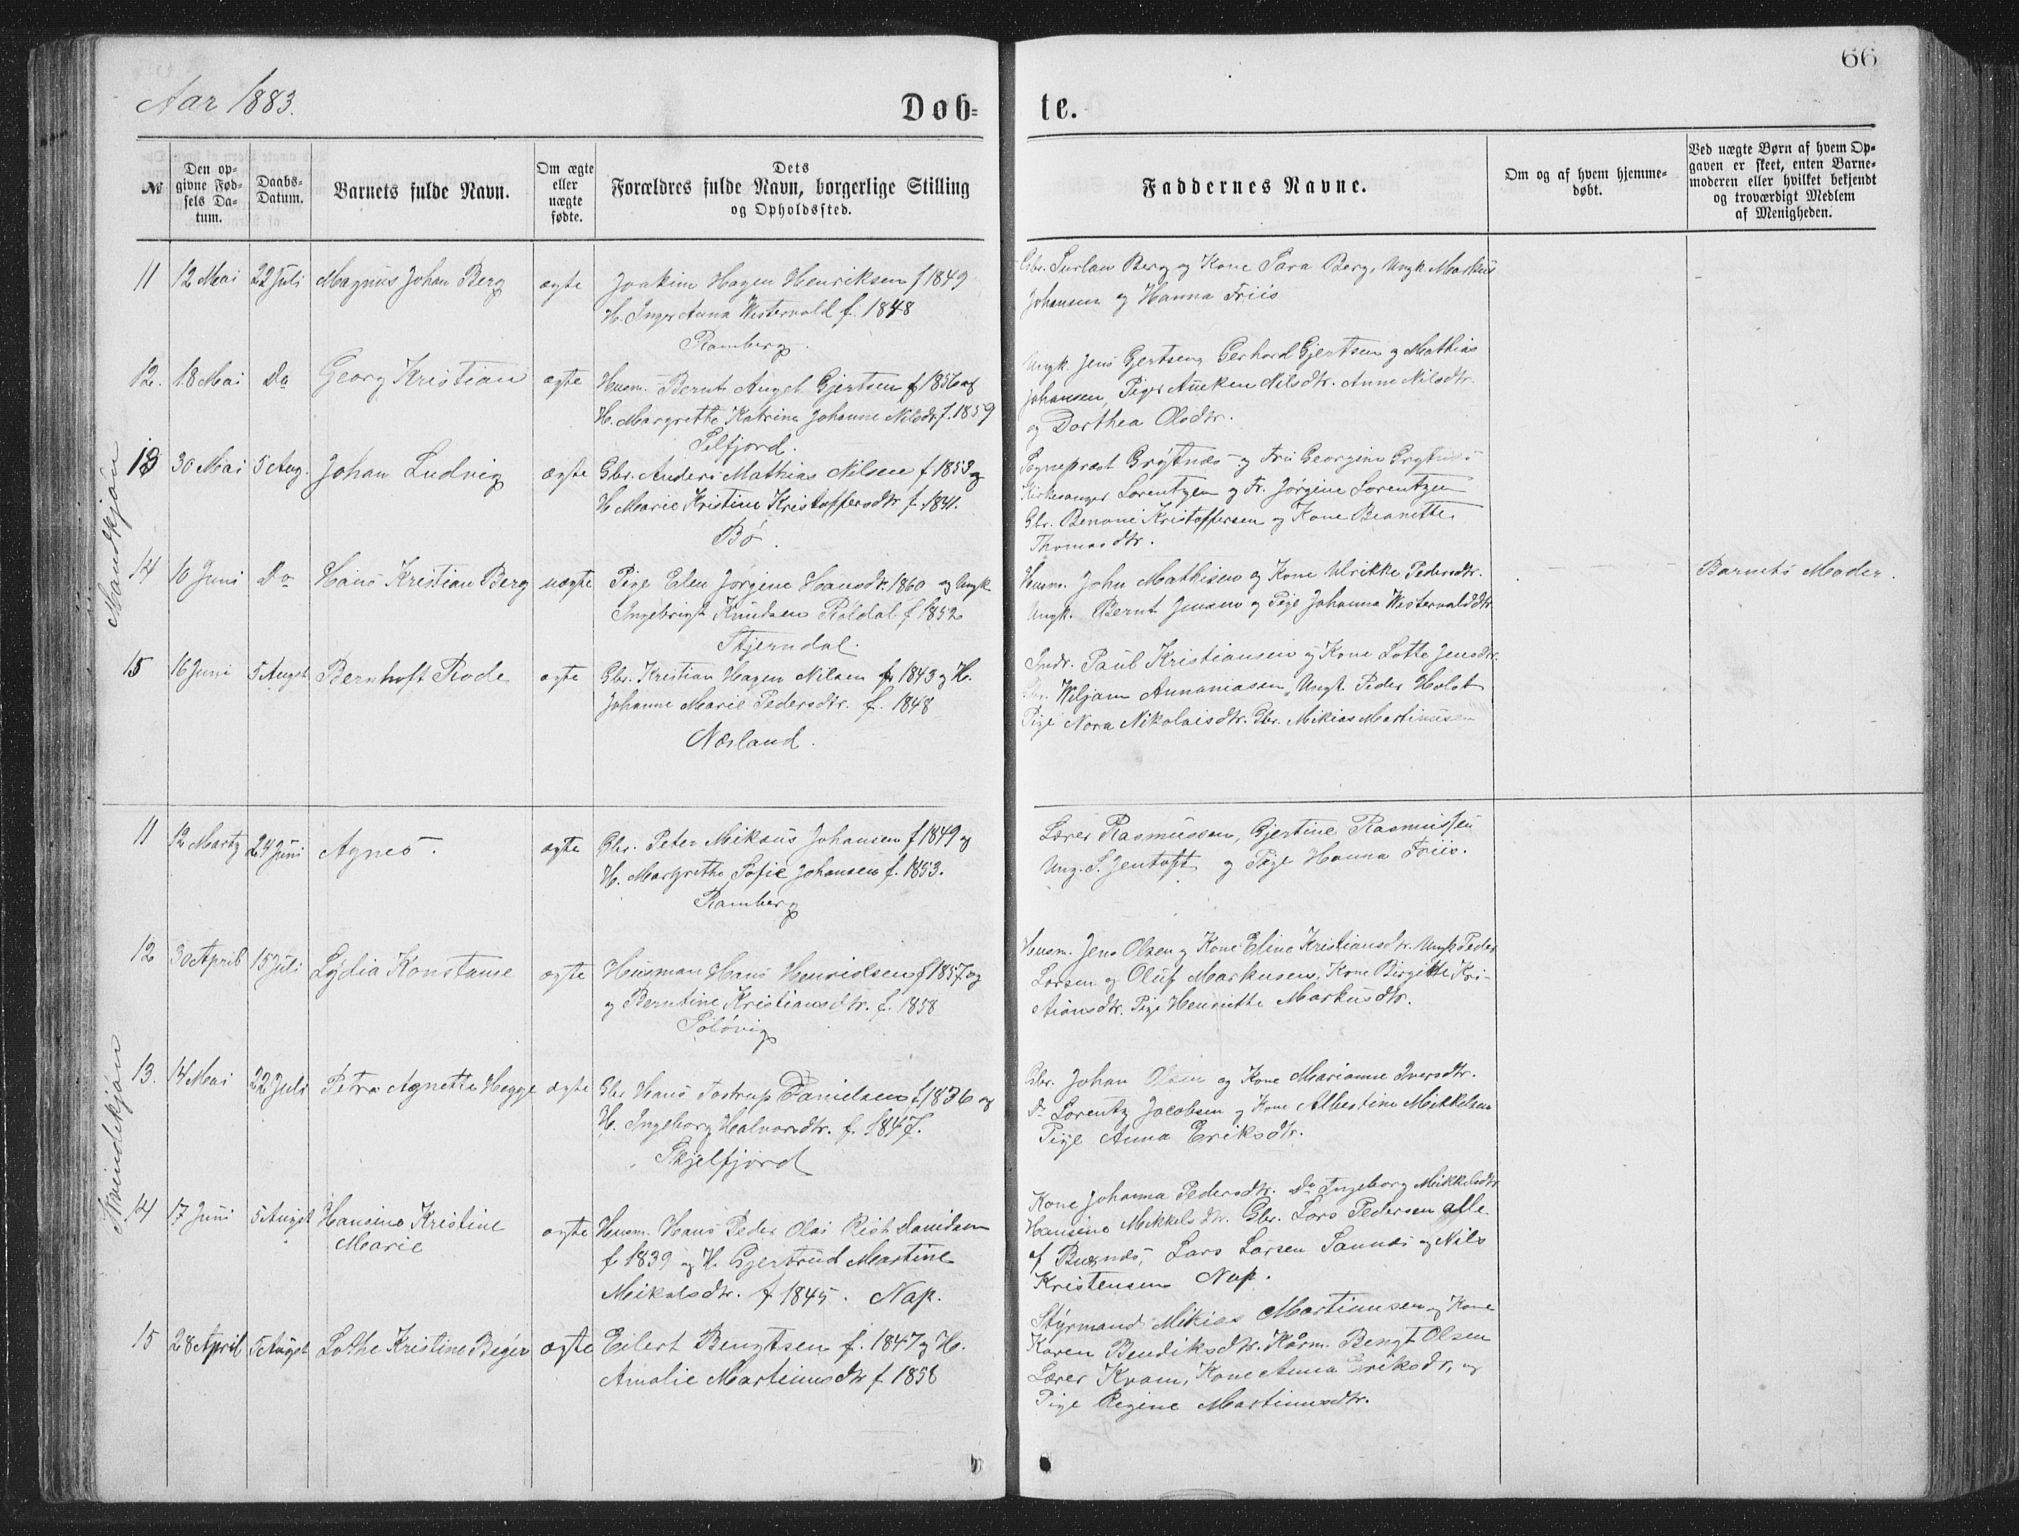 66
Aar 1883.
Døb-
te.
№
Den op-
givne Fød-
sels Da-
tum.
Daabs-
Datum.
Barnets fulde Navn.
Om ægte
eller
uægte
fødte.
Dets
Forældres fulde Navn, borgerlige Stilling
og Opholdssted.
Faddernes Navne.
Om og af hvem hjemme-
døbt.
Ved uægte Børn af hvem Op-
gaven er skeet, enten Barne-
moderen eller hvilket bekjendt
og troværdigt Medlem
af Menigheden.
Mandkjøn
11 12 Mai 22 Juli Magnus Johan Berg ægte Joakim Hagen Henriksen f 1849
H. Inger Anna Westervold f. 1848
Ramberg.
Gbr. Surlau Berg og Kone Sara Berg, Ungk. Markus
Johansen og Hanna Friis
12. 18 Mai Do Georg Kristian ægte Husm. Bernt Auget Gjertsen f 1856 og
H. Margrethe Katrine Johanne Nilsdtr. f. 1859
Selfjord.
Ungk. Jens Gertsen, Gerhard Gjertsen og Mathias
Johansen, Piger Anken Nilsdtr. Anne Nilsdtr.
og Dorthea Olsdtr.
13 30 Mai 5 Aug. Johan Ludvig ægte Gbr. Anders Mathias Nilsen f 1853 og
H. Marie Kristine Kristoffersdtr f. 1841.
Bø.
Sognepræst Grøtnæs og Fru Georgine Grøtnæs
Kirkesanger Lorentzen og Fr. Jørgine Lorentzen
Gbr. Benoni Kristoffersen og Kone Beanette
Thomasdtr.
14 10 Juni Do Hans Kristian Berg uægte Pige Elen Jørgine Hansdtr. 1860 og Ungk
Ingebrigt Knudsen Røldal f 1852
Stjerndal.
Husm. John Mathisen og Kone Ulrikke Pedersdtr.
Ungk. Bernt Jensen og Pige Johanna Westervalddtr.
Barnets Moder.
15 16 Juni 5 Augst Bernhoft Rode ægte Gbr. Kristian Hagen Nilsen f 1843 og H.
Johanne Marie Pedersdtr. f. 1848
Næsland.
Indr. Paul Kristiansen og Kone Lotte Jensdtr.
Gbr. Wiljam Annaniasen, Ungk. Peder Holst
Pige Nora Nikolaisdtr. Gbr. Mikias Martinusen
Kvindekjøn
11 12 Martz 24 Juni Agnes. ægte Gbr. Peter Mikaus Johansen f 1849 og
H. Margrethe Sofie Johansen f. 1853.
Ramberg
Lærer Rasmussen, Gjertine Rasmussen
Ung. S. Jentoft og Pige Hanna Friis.
12 30 April 15 Juli Lydia Konstanse ægte Husman Hans Henriksen f 1857 og
og Berntine Kristiansdtr. f. 1858
Soløvig
Husm. Jens Olsen og Kone Eline Kristiansdtr. Ungk Peder
Larsen og Oluf Markusen, Kone Birgitte Kri-
stiansdtr. Pige Henriette Markusdtr.
13. 14 Mai 22 Juli Petra Agnette Hegge ægte Gbr Hans Tostrup Danielsen f. 1836 og
H. Ingeborg Halvorsdtr. f. 1847.
Skjelfjord
Gbr. Johan Olsen og Kone Marianne Iversdtr.
Do Lorentz Jacobsen og Kone Albertine Mikkelsen
Pige Anna Eriksdtr.
14 17 Juni 5 Augst Hansine Kristine
Marie
ægte Husm. Hans Peder Olai Rist Danidsen
f 1839 og H. Gjertrud Martine
Mikalsdtr. f 1845. Nap.
Kone Johanna Pedersdtr. Do Ingeborg Mikkelsdtr
Hansine Mikkelsdtr. Gbr. Lars Pedersen alle
af Buønæs, Lars Larsen Sannæs og Nils
Kristensen Nap.
15 28 April 5 Augst Lothe Kristine Beyer ægte Eilert Bengtsen f. 1847 og H.
Amalie Martinusdtr f 1858
Styrmand Mikias Martinusen og Kone
Karen Bendiksdtr. Kårm. Bengt Olsen
Lærer Kvam, Kone Anna Eriksdtr. og
Pige Regine Martinusdtr.